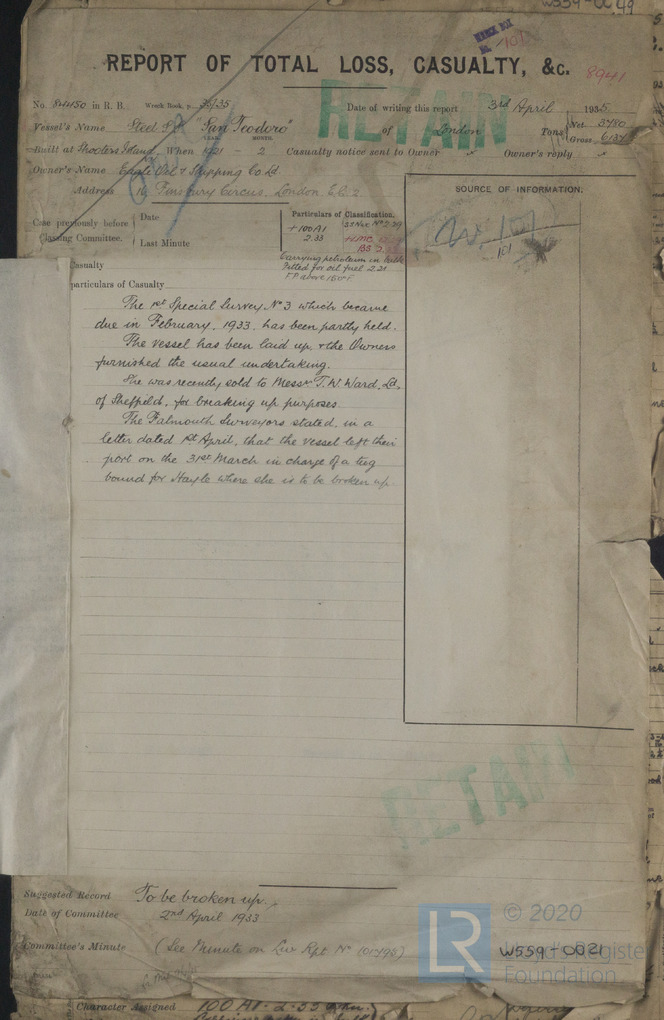 W559-0049
WRECK BOX
No. 101
REPORT OF TOTAL LOSS, CASUALTY, &c. 8941
No. 84450 in R. B. Wreck Book, p. 36/35 Date of writing this report 3rd April 1935
RETAIN
Vessel's Name Steel S.S. "San Teodoro" of London Tons Net 3780 Gross 6137
YEAR. MONTH.
Built at Shooters Island When 1921 - 2 Casualty notice sent to Owner Owner's reply
Owner's Name Eagle Oil & Shipping Co. Ld.
Address 16 Finsbury Circus, London E.C.2
SOURCE OF INFORMATION:
101
Case previously before Classing Committee. Date
Last Minute
Particulars of Classification.
+100A1
2.33
+LMC
BS
Carrying petroleum in bulk
Fitted for oil fuel 2.21
F.P. above 150°F.
Casualty
particulars of Casualty
The 1st Special Survey No 3 which became
due in February, 1933, has been partly held.
The vessel has been laid up, & the Owners
furnished the usual undertaking.
She was recently sold to Messrs T. W. Ward, Ld,
of Sheffield, for breaking up purposes.
The Falmouth Surveyors stated, in a
letter dated 1st April, that the vessel left their
port on the 31st March in charge of a tug
bound for Hayle where she is to be broken up.
RETAIN
Suggested Record To be broken up.
Date of Committee 2nd April 1933
Committee's Minute (See Minute on Lon Rpt No 101495)
LR
© 2020
Lloyd's Register
Foundation
W559-0021
Character Assigned 100A1 - 2.33